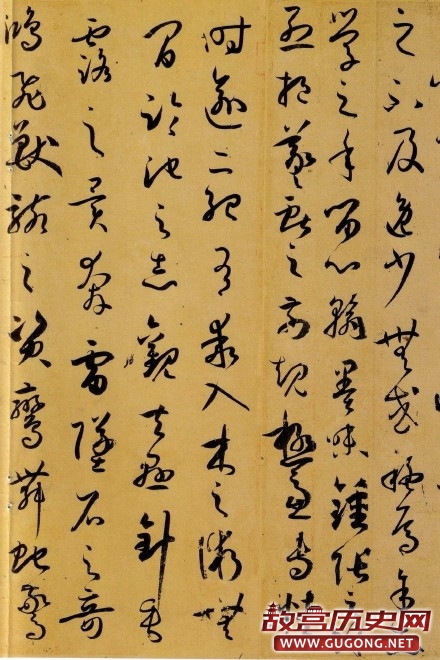 之不及逸少無或疑焉余志
學之年留心翰墨味鍾張之餘
烈挹羲獻之前規極慮專精
時逾二紀有乖入木之術無
間臨池之志觀夫懸針垂
露之異奔雷墜石之奇
鴻飛獸駭之資鸞舞蛇驚
故宫历史网
WWW.GUGONG.NET